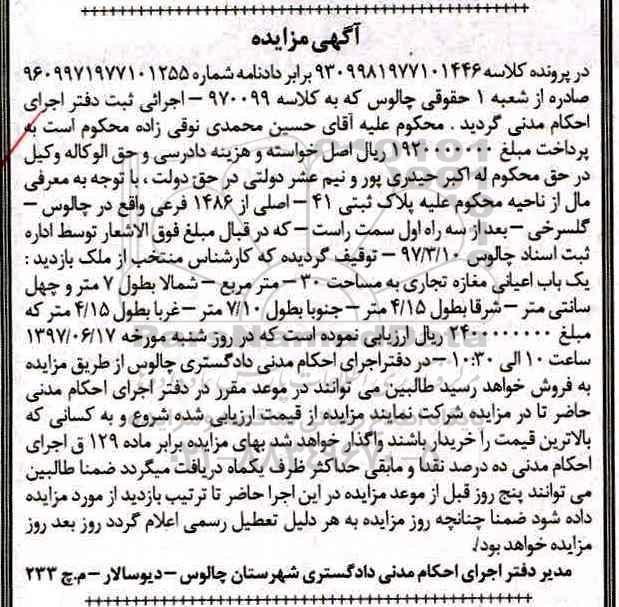 آگهی مزایده
در پرونده کلاسه ۹۳۰۹۹۸۱۹۷۷۱۰۱۴۴۶ برابر دادنامه شماره ۹۶۰۹۹۷۱۹۷۷۱۰۱۲۵۵
صادره از شعبه ۱ حقوقی چالوس که به کلاسه ۹۷۰۰۹۹ – اجرائی ثبت دفتر اجرای
احکام مدنی گردید . محکوم علیه آقای حسین محمدی نوقی زاده محکوم است به
پرداخت مبلغ ۱۹۲۰۰۰۰۰۰۰ ریال اصل خواسته و هزینه دادرسی و حق الوکاله وکیل
در حق محکوم له اکبر حیدری پور و نیم عشر دولتی در حق دولت ، با توجه به معرفی
مال از ناحیه محکوم علیه پلاک ثبتی ۴۱ – اصلی از ۱۴۸۶ فرعی واقع در چالوس –
گلسرخی – بعد از سه راه اول سمت راست – که در قبال مبلغ فوق الاشعار توسط اداره
ثبت اسناد چالوس ۹۷/۳/۱۰ – توقیف گردیده که کارشناس منتخب از ملک بازدید :
یک باب اعیانی مغازه تجاری به مساحت ۳۰ – متر مربع – شمالا بطول ۷ متر و چهل
سانتی متر – شرقا بطول ۴/۱۵ متر – جنوبا بطول ۷/۱۰ متر – غربا بطول ۴/۱۵ متر که
مبلغ ۲۴۰۰۰۰۰۰۰۰ ریال ارزیابی نموده است که در روز شنبه مورخه ۱۳۹۷/۰۶/۱۷
ساعت ۱۰ الی ۱۰:۳۰ – در دفتر اجرای احکام مدنی دادگستری چالوس از طریق مزایده
به فروش خواهد رسید طالبین می توانند در موعد مقرر در دفتر اجرای احکام مدنی
حاضر تا در مزایده شرکت نمایند مزایده از قیمت ارزیابی شده شروع و به کسانی که
بالاترین قیمت را خریدار باشند واگذار خواهد شد بهای مزایده برابر ماده ۱۲۹ ق اجرای
احکام مدنی ده درصد نقدا و مابقی حداکثر ظرف یکماه دریافت میگردد ضمنا طالبین
می توانند پنج روز قبل از موعد مزایده در این اجرا حاضر تا ترتیب بازدید از مورد مزایده
داده شود ضمنا چنانچه روز مزایده به هر دلیل تعطیل رسمی اعلام گردد روز بعد روز
مزایده خواهد بود/.
مدیر دفتر اجرای احکام مدنی دادگستری شهرستان چالوس – دیوسالار – م.چ ۲۳۳